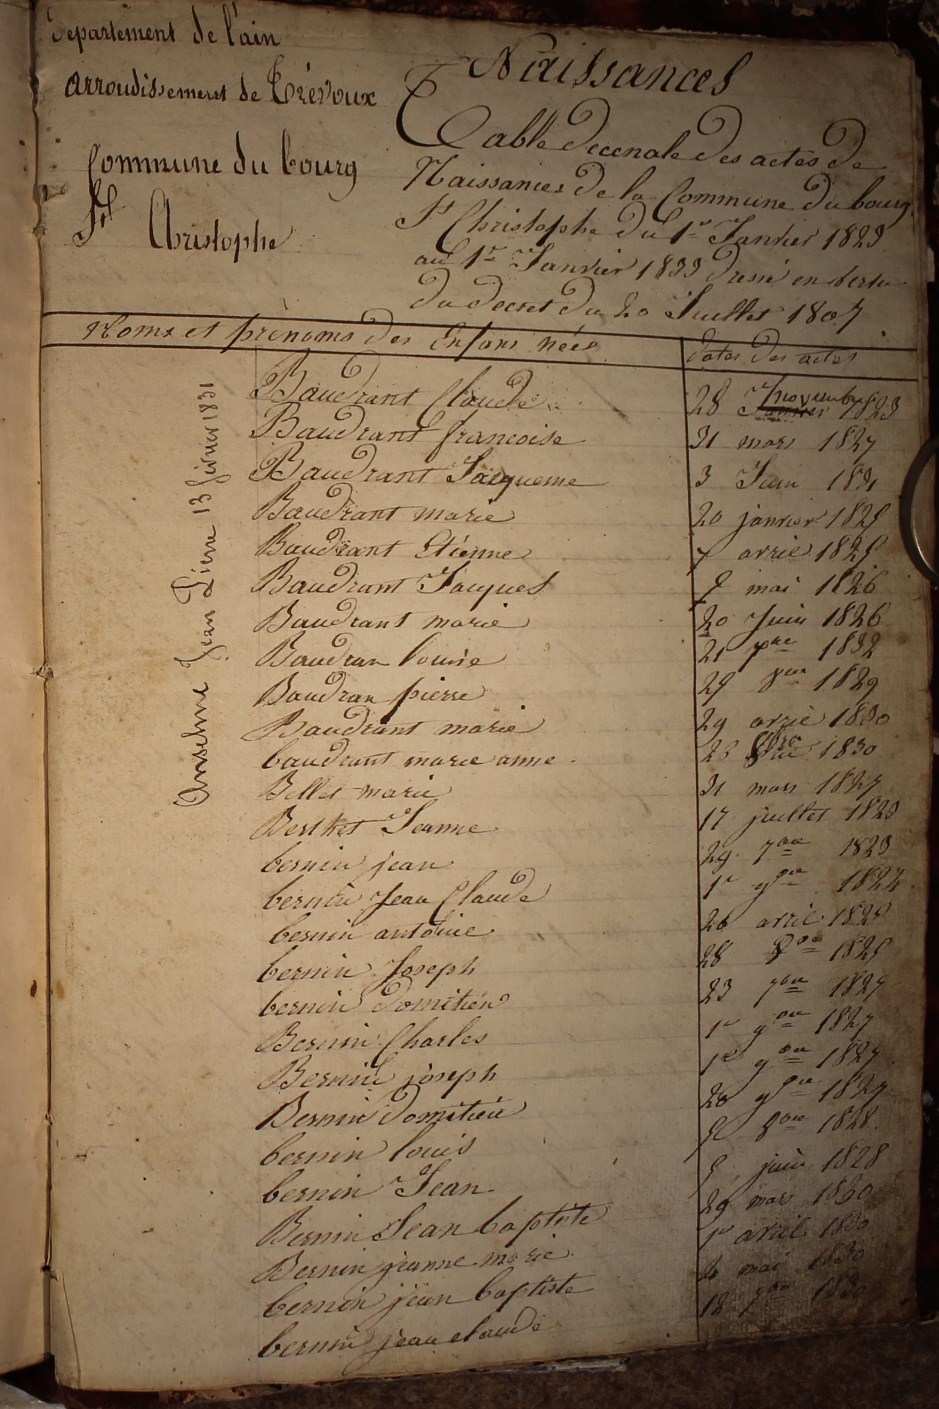 Departement de l'ain
arrondissement de Trévoux
Commune du bourg
St Christophe
Naissances
Table decenale des actes de
Naissances de la Commune du bourg
St Christophe du 1er Janvier 1823
au 1er Janvier 1833 dressé en vertu
du decret du 20 Juillet 1807
Noms et prénoms des Enfans nées
dates des actes
Anselme Jean Pierre 13 fevrier 1831
Baudrant Claude 28 novembre 1823
Baudrant francoise 31 mars 1827
Baudrant Jacqueme 3 Juin 1831
Baudrant marie 20 janvier 1825
Baudrant Etienne 7 avril 1825
Baudrant Jacques mai 1826
Baudrant marie 20 Juin 1826
Baudran louise 21 7bre 1832
Baudran pierre 29 8bre 1829
Baudrant marie 29 avril 1830
baudrant marie anne 23 8bre 1830
Bellet marie 31 mars 1827
Berthet Jeanne 17 juillet 1823
bernin jean 29 7bre 1823
bernin Jean Claude 1er 9bre 1824
bernin antoine 26 avril 1825
bernin Joseph 28 8bre 1825
bernin Domitien 23 7bre 1827
Bernin Charles 1er 9bre 1827
Bernin joseph 1er 9bre 1827
Bernin Domitien 20 9bre 1827
bernin louis 8bre 1828
bernin Jean juin 1828
Bernin Jean baptiste 29 mars 1830
Bernin jeanne marie 1er avril 1830
bernin jean baptiste mai 1830
bernin jean claude 18 7bre 1830